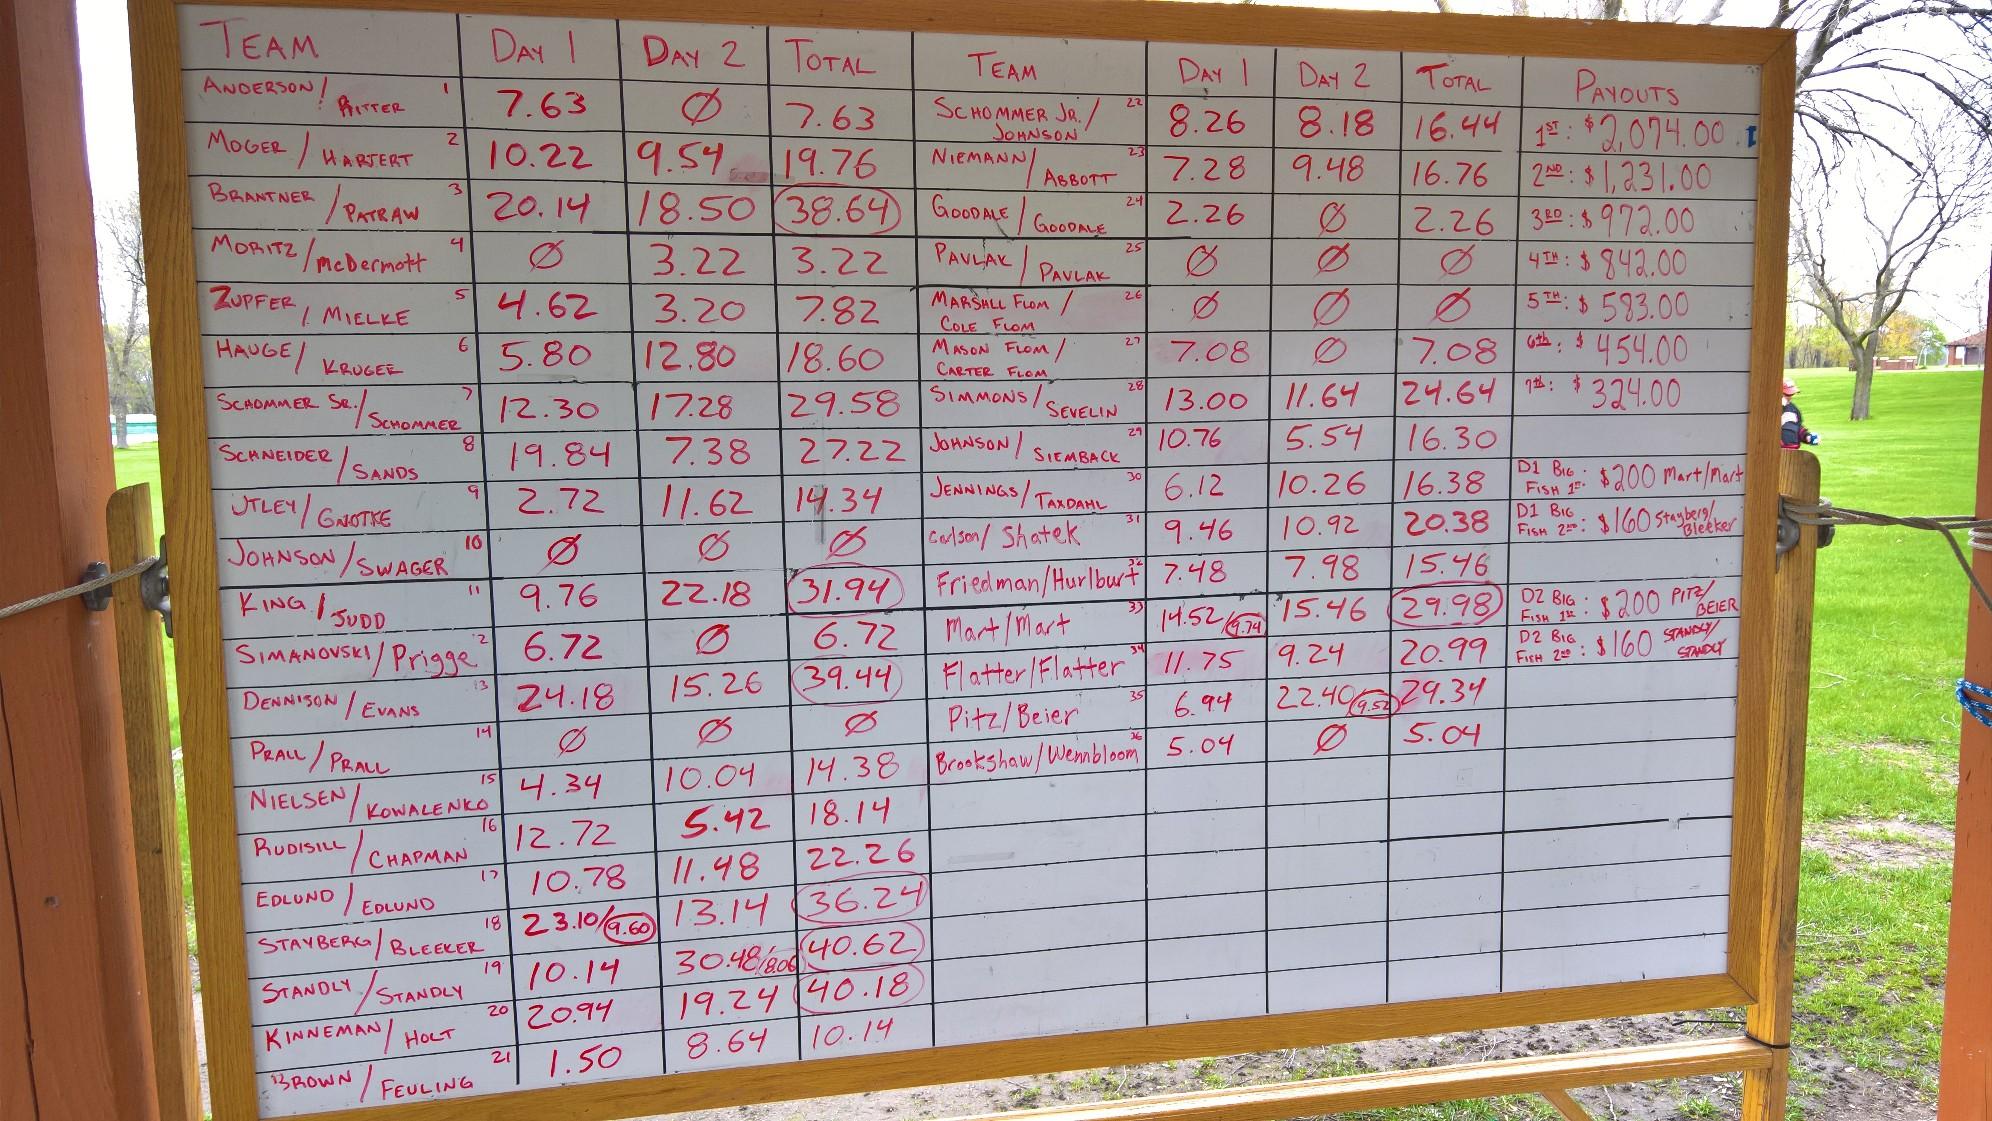 TEAM DAY 1 DAY 2 TOTAL
ANDERSON/RITTER 1 7.63 Ø 7.63
MOGER/HARTERT 2 10.22 9.54 19.76
BRANTNER/PATRAW 3 20.14 18.50 38.64
MORITZ/McDermott 4 Ø 3.22 3.22
ZUPFER/MIELKE 5 4.62 3.20 7.82
HAUGE/KRUGER 6 5.80 12.80 18.60
SCHOMMER SR./SCHOMMER 7 12.30 17.28 29.58
SCHNEIDER/SANDS 8 19.84 7.38 27.22
UTLEY/GNOTKE 9 2.72 11.62 14.34
JOHNSON/SWAGER 10 Ø Ø Ø
KING/JUDD 11 9.76 22.18 31.94
SIMANOVSKI/Prigge 12 6.72 Ø 6.72
DENNISON/EVANS 13 24.18 15.26 39.44
PRALL/PRALL 14 Ø Ø Ø
NIELSEN/KOWALENKO 15 4.34 10.04 14.38
RUDISILL/CHAPMAN 16 12.72 5.42 18.14
EDLUND/EDLUND 17 10.78 11.48 22.26
STAYBERG/BLEEKER 18 23.10/9.60 13.14 36.24
STANDLY/STANDLY 19 10.14 30.48/8.06 40.62
KINNEMAN/HOLT 20 20.94 19.24 40.18
BROWN/FEULING 21 1.50 8.64 10.14
TEAM DAY 1 DAY 2 TOTAL
SCHOMMER JR./JOHNSON 22 8.26 8.18 16.44
NIEMANN/ABBOTT 23 7.28 9.48 16.76
GOODALE/GOODALE 24 2.26 Ø 2.26
PAVLAK/PAVLAK 25 Ø Ø Ø
MARSHALL FLOM/COLE FLOM 26 Ø Ø Ø
MASON FLOM/CARTER FLOM 27 7.08 Ø 7.08
SIMMONS/SEVELIN 28 13.00 11.64 24.64
JOHNSON/SIEMBACK 29 10.76 5.54 16.30
JENNINGS/TAXDAHL 30 6.12 10.26 16.38
Carlson/Shatek 31 9.46 10.92 20.38
Friedman/Hurlburt 32 7.48 7.98 15.46
Mart/Mart 33 14.52/9.74 15.46 29.98
Flatter/Flatter 34 11.75 9.24 20.99
Pitz/Beier 35 6.94 22.40/9.52 29.34
Brookshaw/Wennbloom 36 5.04 Ø 5.04
PAYOUTS
1ST: $2,074.00
2ND: $1,231.00
3RD: $972.00
4TH: $842.00
5TH: $583.00
6th: $454.00
7th: $324.00
D1 BIG FISH 1ST: $200 Mart/Mart
D1 BIG FISH 2ND: $160 Stayberg/Bleeker
D2 BIG FISH 1ST: $200 PITZ/BEIER
D2 BIG FISH 2ND: $160 STANDLY/STANDLY